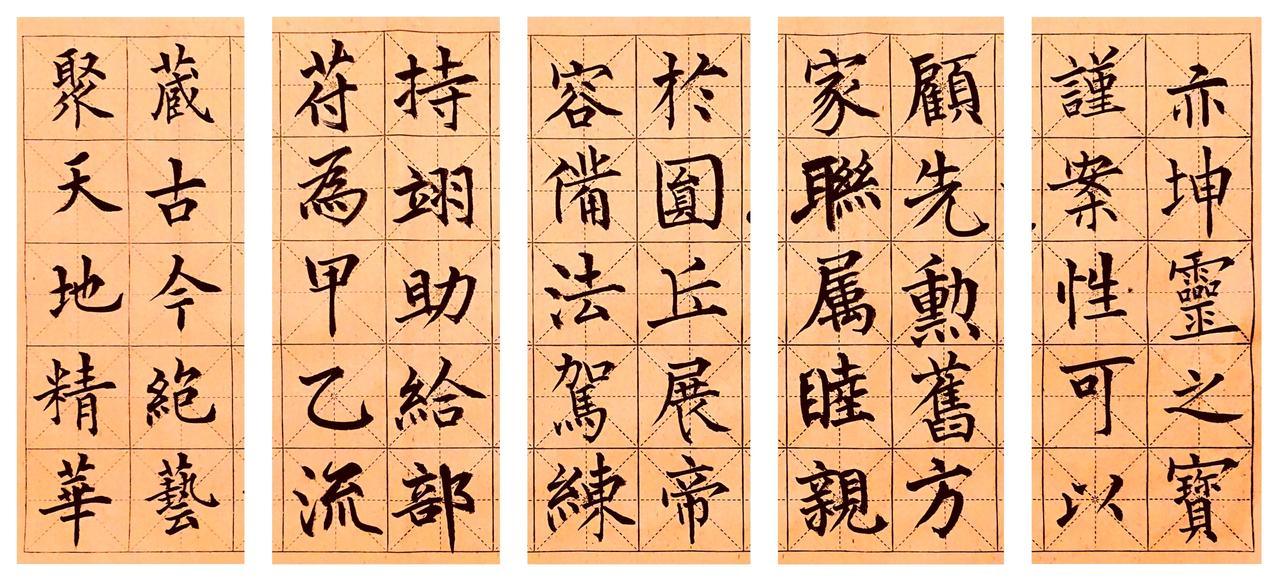 亦坤靈之寶
謹案性可以
顧先勳舊方
家聯属睦親
於圓丘展帝
容備法駕練
持翊助給部
苻為甲乙流
藏古今絶藝
聚天地精華